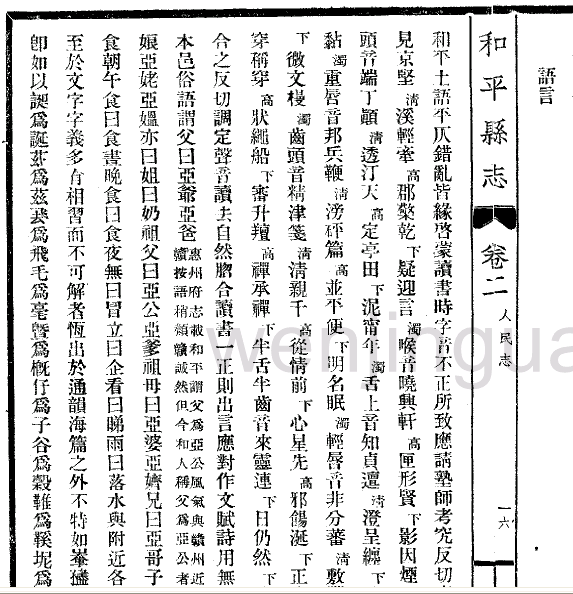 語言
和平縣志
卷二
人民志
一六
和平土語平仄錯亂皆緣啓蒙讀書時字音不正所致應請塾師考究反切
見京堅清溪輕牽高郡檠乾下疑迎言濁喉音曉興軒高匣形賢下影因煙
頭音端丁顚清透汀天高定亭田下泥甯年濁舌上音知貞邅清澄呈纏下
黏濁重唇音邦兵鞭清滂砰篇高並平便下明名眠濁輕唇音非分蕃清敷
下微文樠濁齒頭音精津箋清清親千高從情前下心星先高邪餳涎下正
穿稱穿高狀繩船下審升羶高禪承禪下半舌半齒音來靈連下日仍然下
合之反切調定聲音讀去自然脗合讀書一正則出言應對作文賦詩用無
本邑俗語謂父曰亞爺亞爸惠州府志載和平謂父爲亞公風氣與贛州近
贛按語稍類贛誠然但今和人稱父爲亞公者
娘亞姥亞媼亦曰姐曰奶祖父曰亞公亞爹祖母曰亞婆亞嬭兄曰亞哥子
食朝午食曰食晝晚食曰食夜無曰冐立曰企看曰睇雨曰落水與附近各
至於文字字義多有相習而不可解者恆出於通韻海篇之外不特如峯
卽如以誕爲誕茲爲茲爲飛毛爲毫曁爲槪仔爲子谷爲穀雞爲坭爲
wenjingua